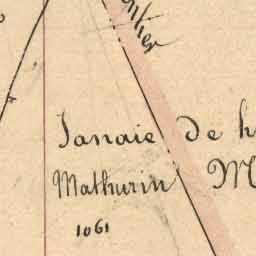 Janaie De h
Mathurin M
1061